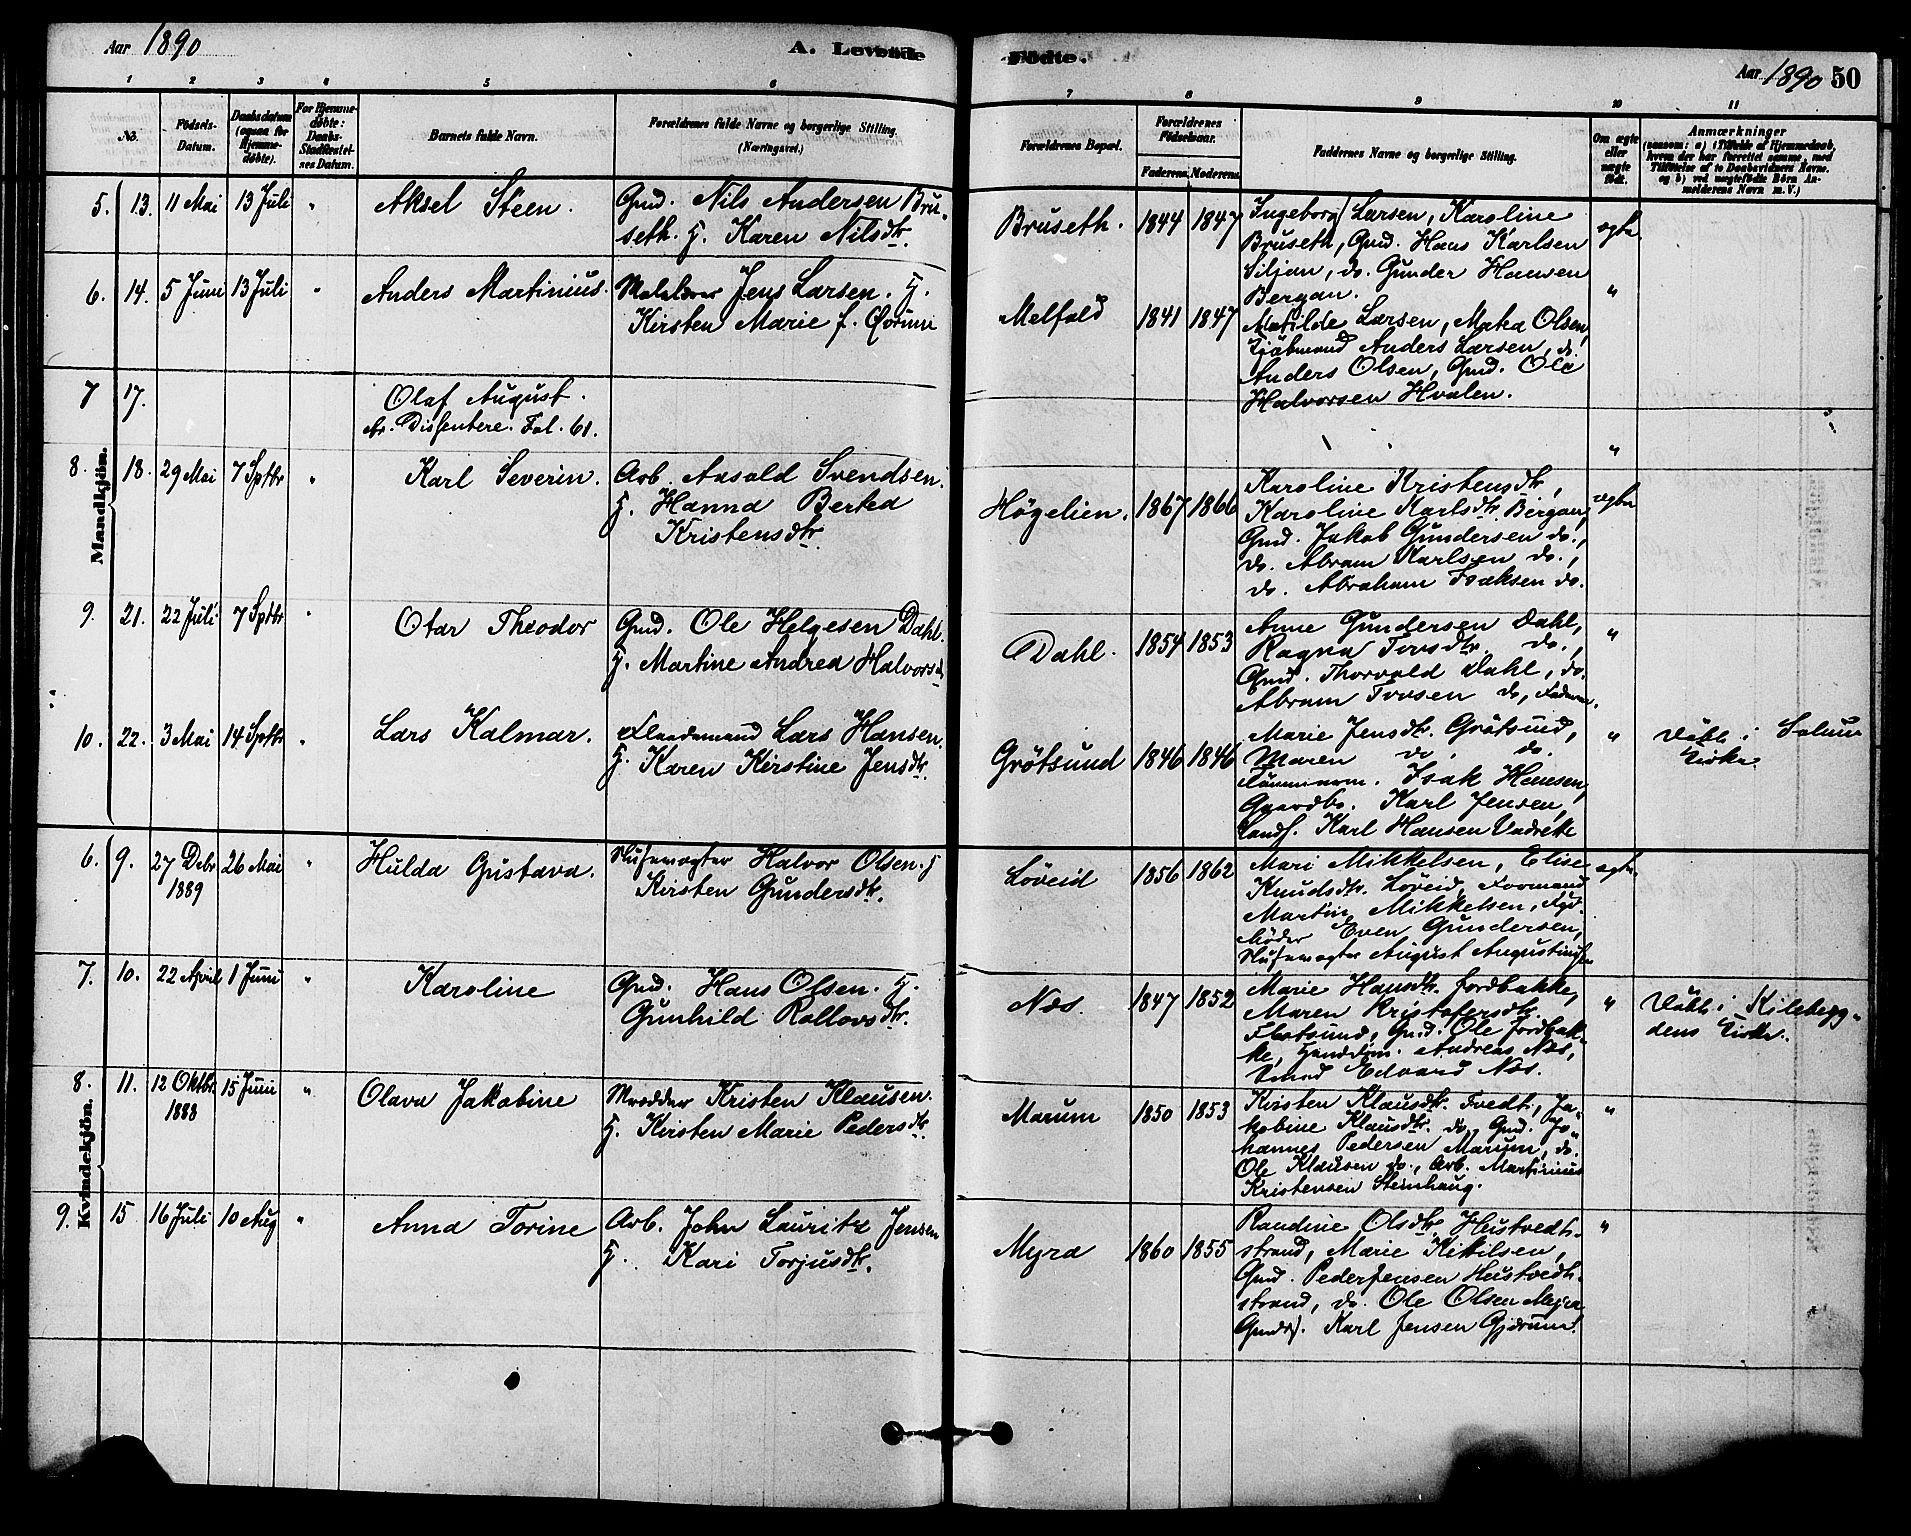 Aar 1890
A. Levende
Födte.
Aar 1890 50
1 2 3 4 5 6 7 8 9 10 11
No.
Födsels-Datum.
Daabsdatum (ogsaa for Hjemme-døbte).
For Hjemme-døbte: Daabs-Stadfæstel-ses Datum.
Barnets fulde Navn.
Forældrenes fulde Navne og borgerlige Stilling. (Næringsvei.)
Forældrenes Bopæl.
Forældrenes Födselsaar.
Faderens. Moderens.
Faddernes Navne og borgerlige Stilling.
Om ægte eller uægte født.
Anmærkninger
(saasom: a) i Tilfælde af Hjemmedaab,
hvem der har forrettet samme, med
Tilføielse af to Daabsvidners Navne.
og b) ved uægtefødte Børn An-
melderens Navn m. V.)
Mandkjön.
5. 13. 11 Mai 13 Juli " Aksel Steen. Gmd. Nils Andersen Bru-
seth. H. Karen Nilsdtr.
Bruseth. 1844 1847 Ingeborg Larsen, Karoline
Bruseth, Gmd. Hans Karlsen
Siljan, do. Gunder Hansen
Bergan.
ægte
6. 14. 5 Juni 13 Juli " Anders Martinius. Jens Larsen. H.
Kirsten Marie f.
Melfald 1841 1847 Matilde Larsen, Olsen,
Anders Larsen, do.
Anders Olsen, Gmd. Ole
Halvorsen Hvalen.
"
7 17. Olaf August.
Dissentere. Fol. 61.
"
8. 18. 29 Mai 7 Sptbr " Karl Severin. Arb. Aasold Svendsen.
H. Hanna Bertea
Kristensdtr.
Høgelien. 1867 1866 Karoline Kristensdtr,
Karoline Karlsdtr. Bergan,
Gmd. Jakob Gundersen do.,
do. Abram Karlsen do.,
do. Abraham Isaksen do.
ægte
9. 21. 22 Juli 7 Sptbr " Otar Theodor Gmd. Ole Helgesen Dahl.
H. Martine Andrea Halvorsd.
Dahl. 1854 1853 Anne Gundersen Dahl,
Ragna Torsdtr. do.,
Gmd. Thorvald Dahl, do.
Abram Torsen do, Faderen.
"
10. 22. 3 Mai 14 Sptbr " Lars Kalmar. Lars Hansen.
H. Karen Kirstine Jensdtr.
Grötsund 1846 1846 Marie Jensdtr. Grötsund,
Maren do. do.
Isak Hansen,
Gaardbr. Karl Jensen,
Karl Hansen
" Döbt i Solum
Kirke.
Kvindekjön.
6. 9. 27 Debr 26 Mai " Hulda Gustava. Halvor Olsen. H
1889 Kirsten Gundersdtr.
Löveid 1856 1862 Mari Mikkelsen, Elise
Knudsdtr. Löveid, Formand
Martin Mikkelsen,
Even Gundersen,
August Augustinsen
ægte
7. 10. 22 April 1 Juni " Karoline Gmd. Hans Olsen. H.
Gunhild Rollovsdtr.
Næs. 1847 1852 Marie Hansdtr. Jordbakke,
Maren Kristofersdtr.
Gmd. Ole Jordbak-
ke, Andreas Næs,
Edvard Næs.
" Döbt i Kilebyg-
dens Kirke.
8. 11. 12 Oktbr 15 Juni " Olava Jakobine Kristen Klausen.
1888 H. Kirsten Marie Pedersdtr.
Marum 1850 1853 Kirsten Klausdtr. Tvedt, Ja-
kobine Klausdtr. do, Gmd. Jo-
hannes Pedersen Marum, do.
Ole Klausen do., Arb. Martinius
Kristensen Steinhaug.
"
9. 15 16 Juli 10 Aug " Anna Torine Arb. John Lauritz Jensen
H. Kari Torjusdtr.
Myra 1860 1855 Randine Olsdtr. Hustvedt-
strand, Marie Kittilsen,
Gmd. Peder Jensen Hustvedt-
strand, do. Ole Olsen Myra
Karl Jensen Gjerum.
"